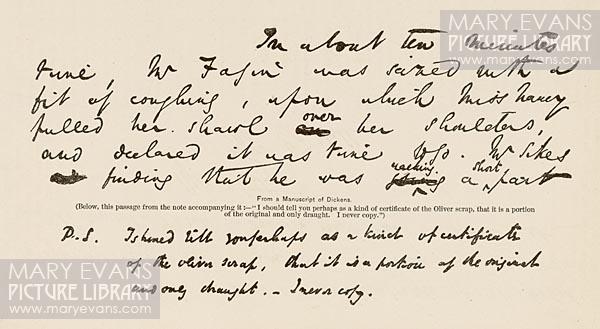 MARY EVANS
PICTURE LIBRARY
www.maryevans.com
In about ten minutes
time, Mr Fagin was seized with a
fit of coughing, upon which Miss Nancy
pulled her shawl over her shoulders,
and declared it was time to go. Mr Sikes
finding that he was walking a short part
From a Manuscript of Dickens.
(Below, this passage from the note accompanying it:—"I should tell you perhaps as a kind of certificate of the Oliver scrap, that it is a portion
of the original and only draught. I never copy.")
P.S. I should tell you perhaps as a kind of certificate
of the oliver scrap, that it is a portion of the original
and only draught. – I never copy.
MARY EVANS
PICTURE LIBRARY
www.maryevans.com